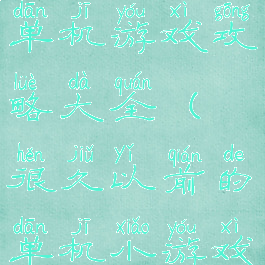 dān jī yóu xì gōng
单机游戏攻
lüè dà quán
略大全(
hěn jiǔ yǐ qián de
很久以前的
dān jī xiǎo yóu xì
单机小游戏